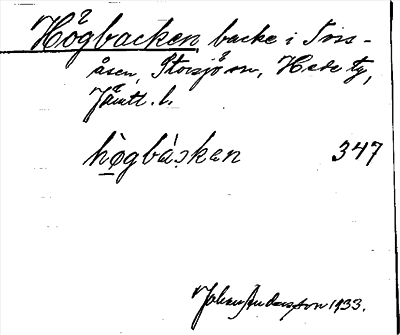 Högbacken backe i Tors-
åsen, Storsjön, Hede tg,
Jämtl. l.
hògbàkan 347
Johan Andersson 1933.